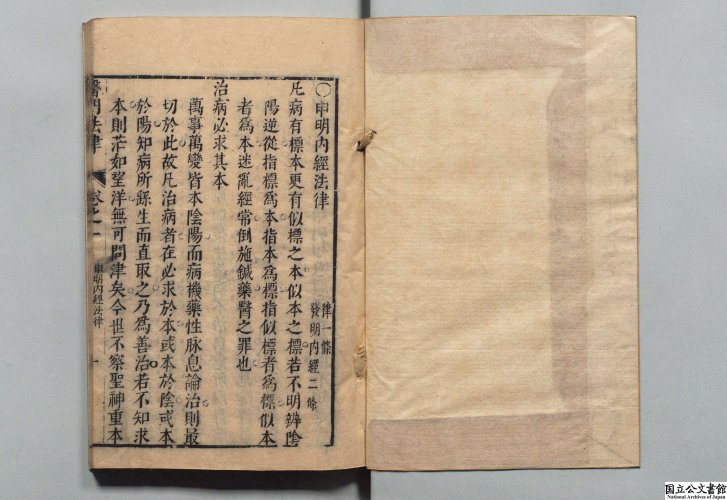 ○申明內經法律
律一條
發明內經二條
凡病有標本更有似標之本似本之標若不明辨陰
陽逆從指標爲本指本爲標指似標者爲標似本
者爲本迷亂經常倒施鍼藥醫之罪也
治病必求其本
萬事萬變皆本陰陽而病機藥性脉息論治則最
切於此故凡治病者在必求於本或本於陰或本
於陽知病所繇生而直取之乃爲善治若不知求
本則茫如望洋無可問津矣今世不察聖神重本
醫門法律
卷之一
申明內經法律
一
国立公文書館
National Archives of Japan